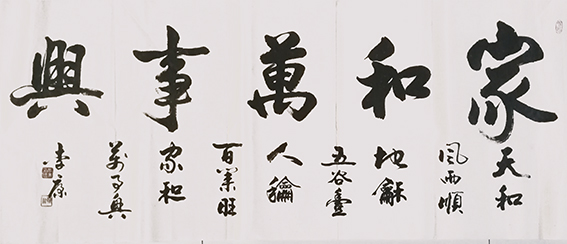 家和萬事興
天和
風雨順
地龢
五谷豐
人龢
百業旺
家和
萬事興
李康